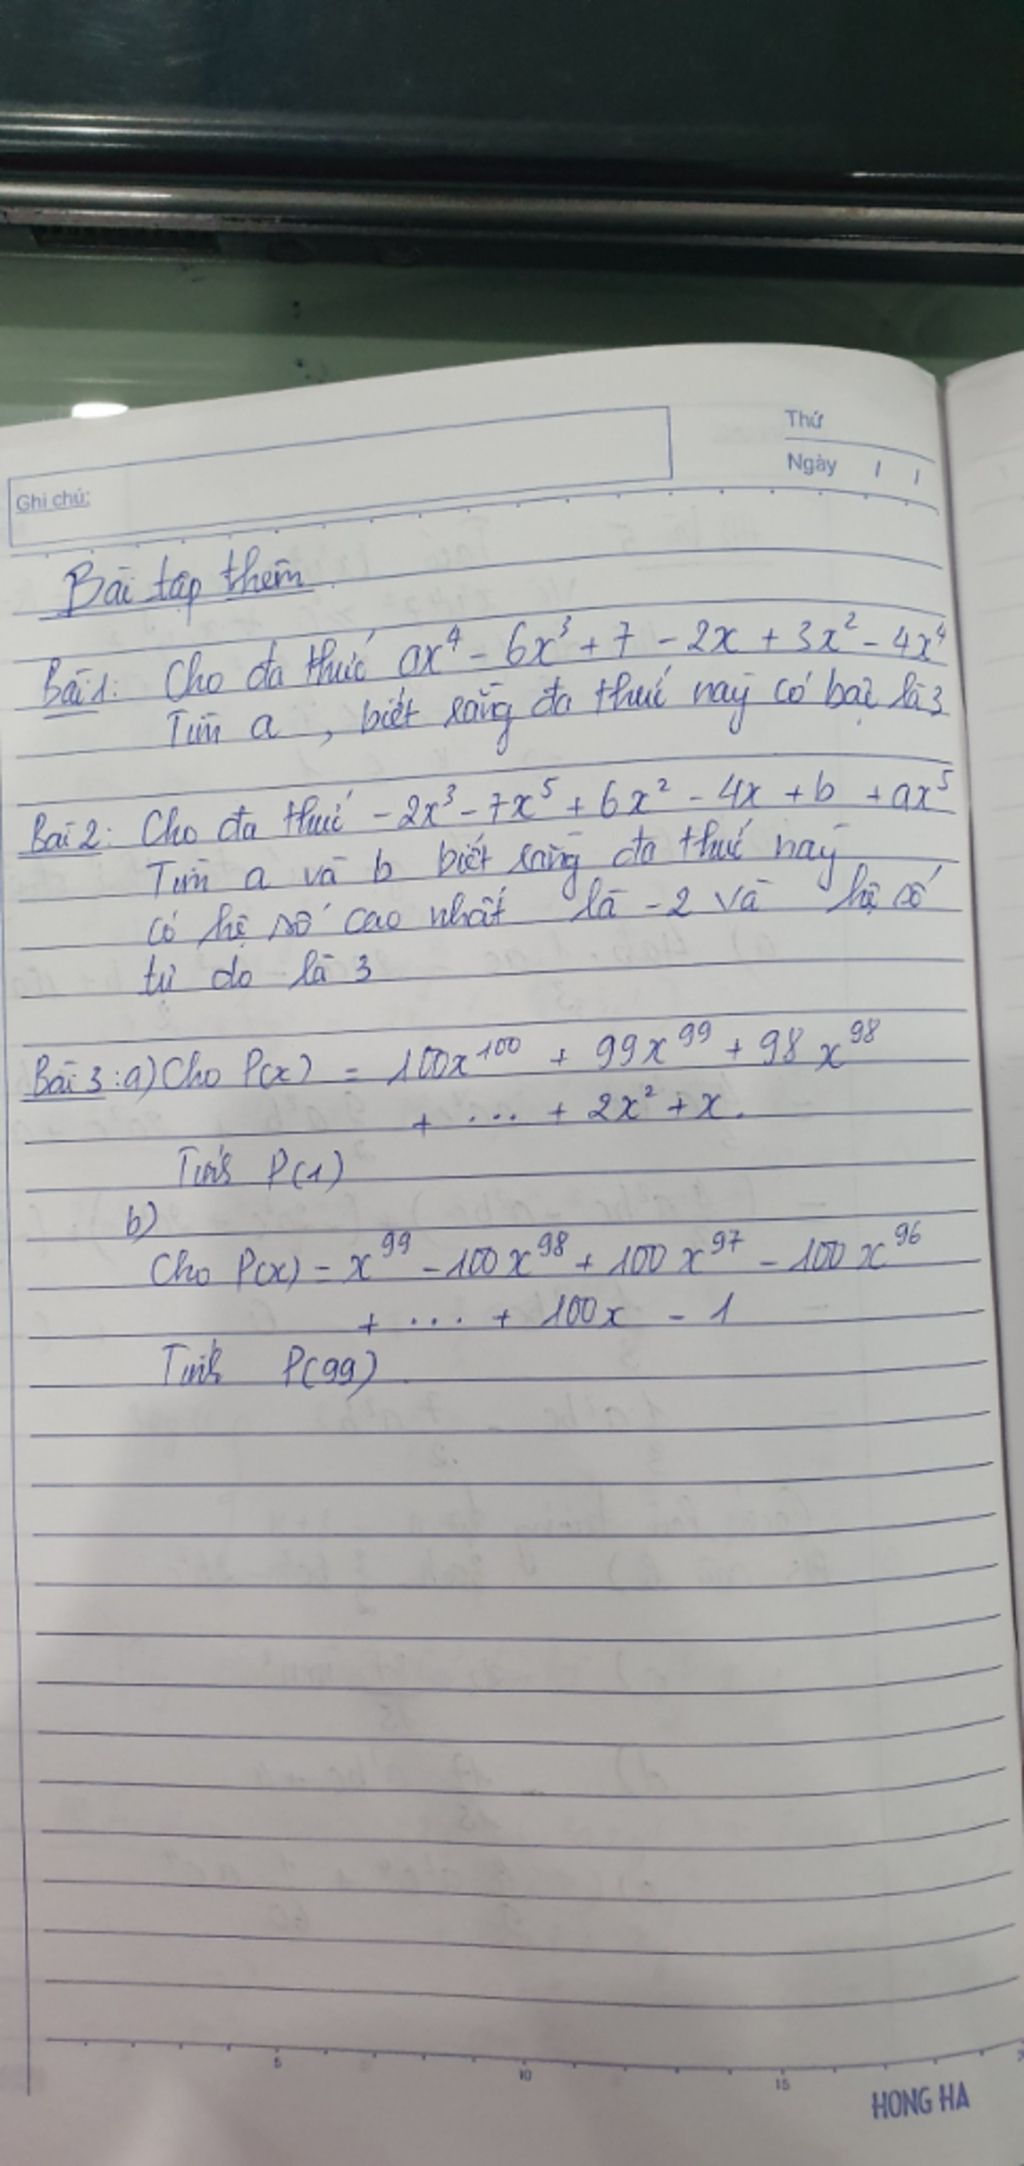 Thứ
Ngày / /
Ghi chú:
Bài tập thêm
Bài 1: Cho đa thức ax⁴ - 6x³ + 7 - 2x + 3x² - 4x⁴
Tìm a, biết rằng đa thức này có bậc là 3
Bài 2: Cho đa thức -2x³ - 7x⁵ + 6x² - 4x + b + ax⁵
Tìm a và b biết rằng đa thức này
có hệ số cao nhất là -2 và hệ số
tự do là 3
Bài 3: a) Cho P(x) = 100x¹⁰⁰ + 99x⁹⁹ + 98x⁹⁸
+ ... + 2x² + x.
Tính P(1)
b)
Cho P(x) = x⁹⁹ - 100x⁹⁸ + 100x⁹⁷ - 100x⁹⁶
+ ... + 100x - 1
Tính P(99).
5 10 15
HONG HA